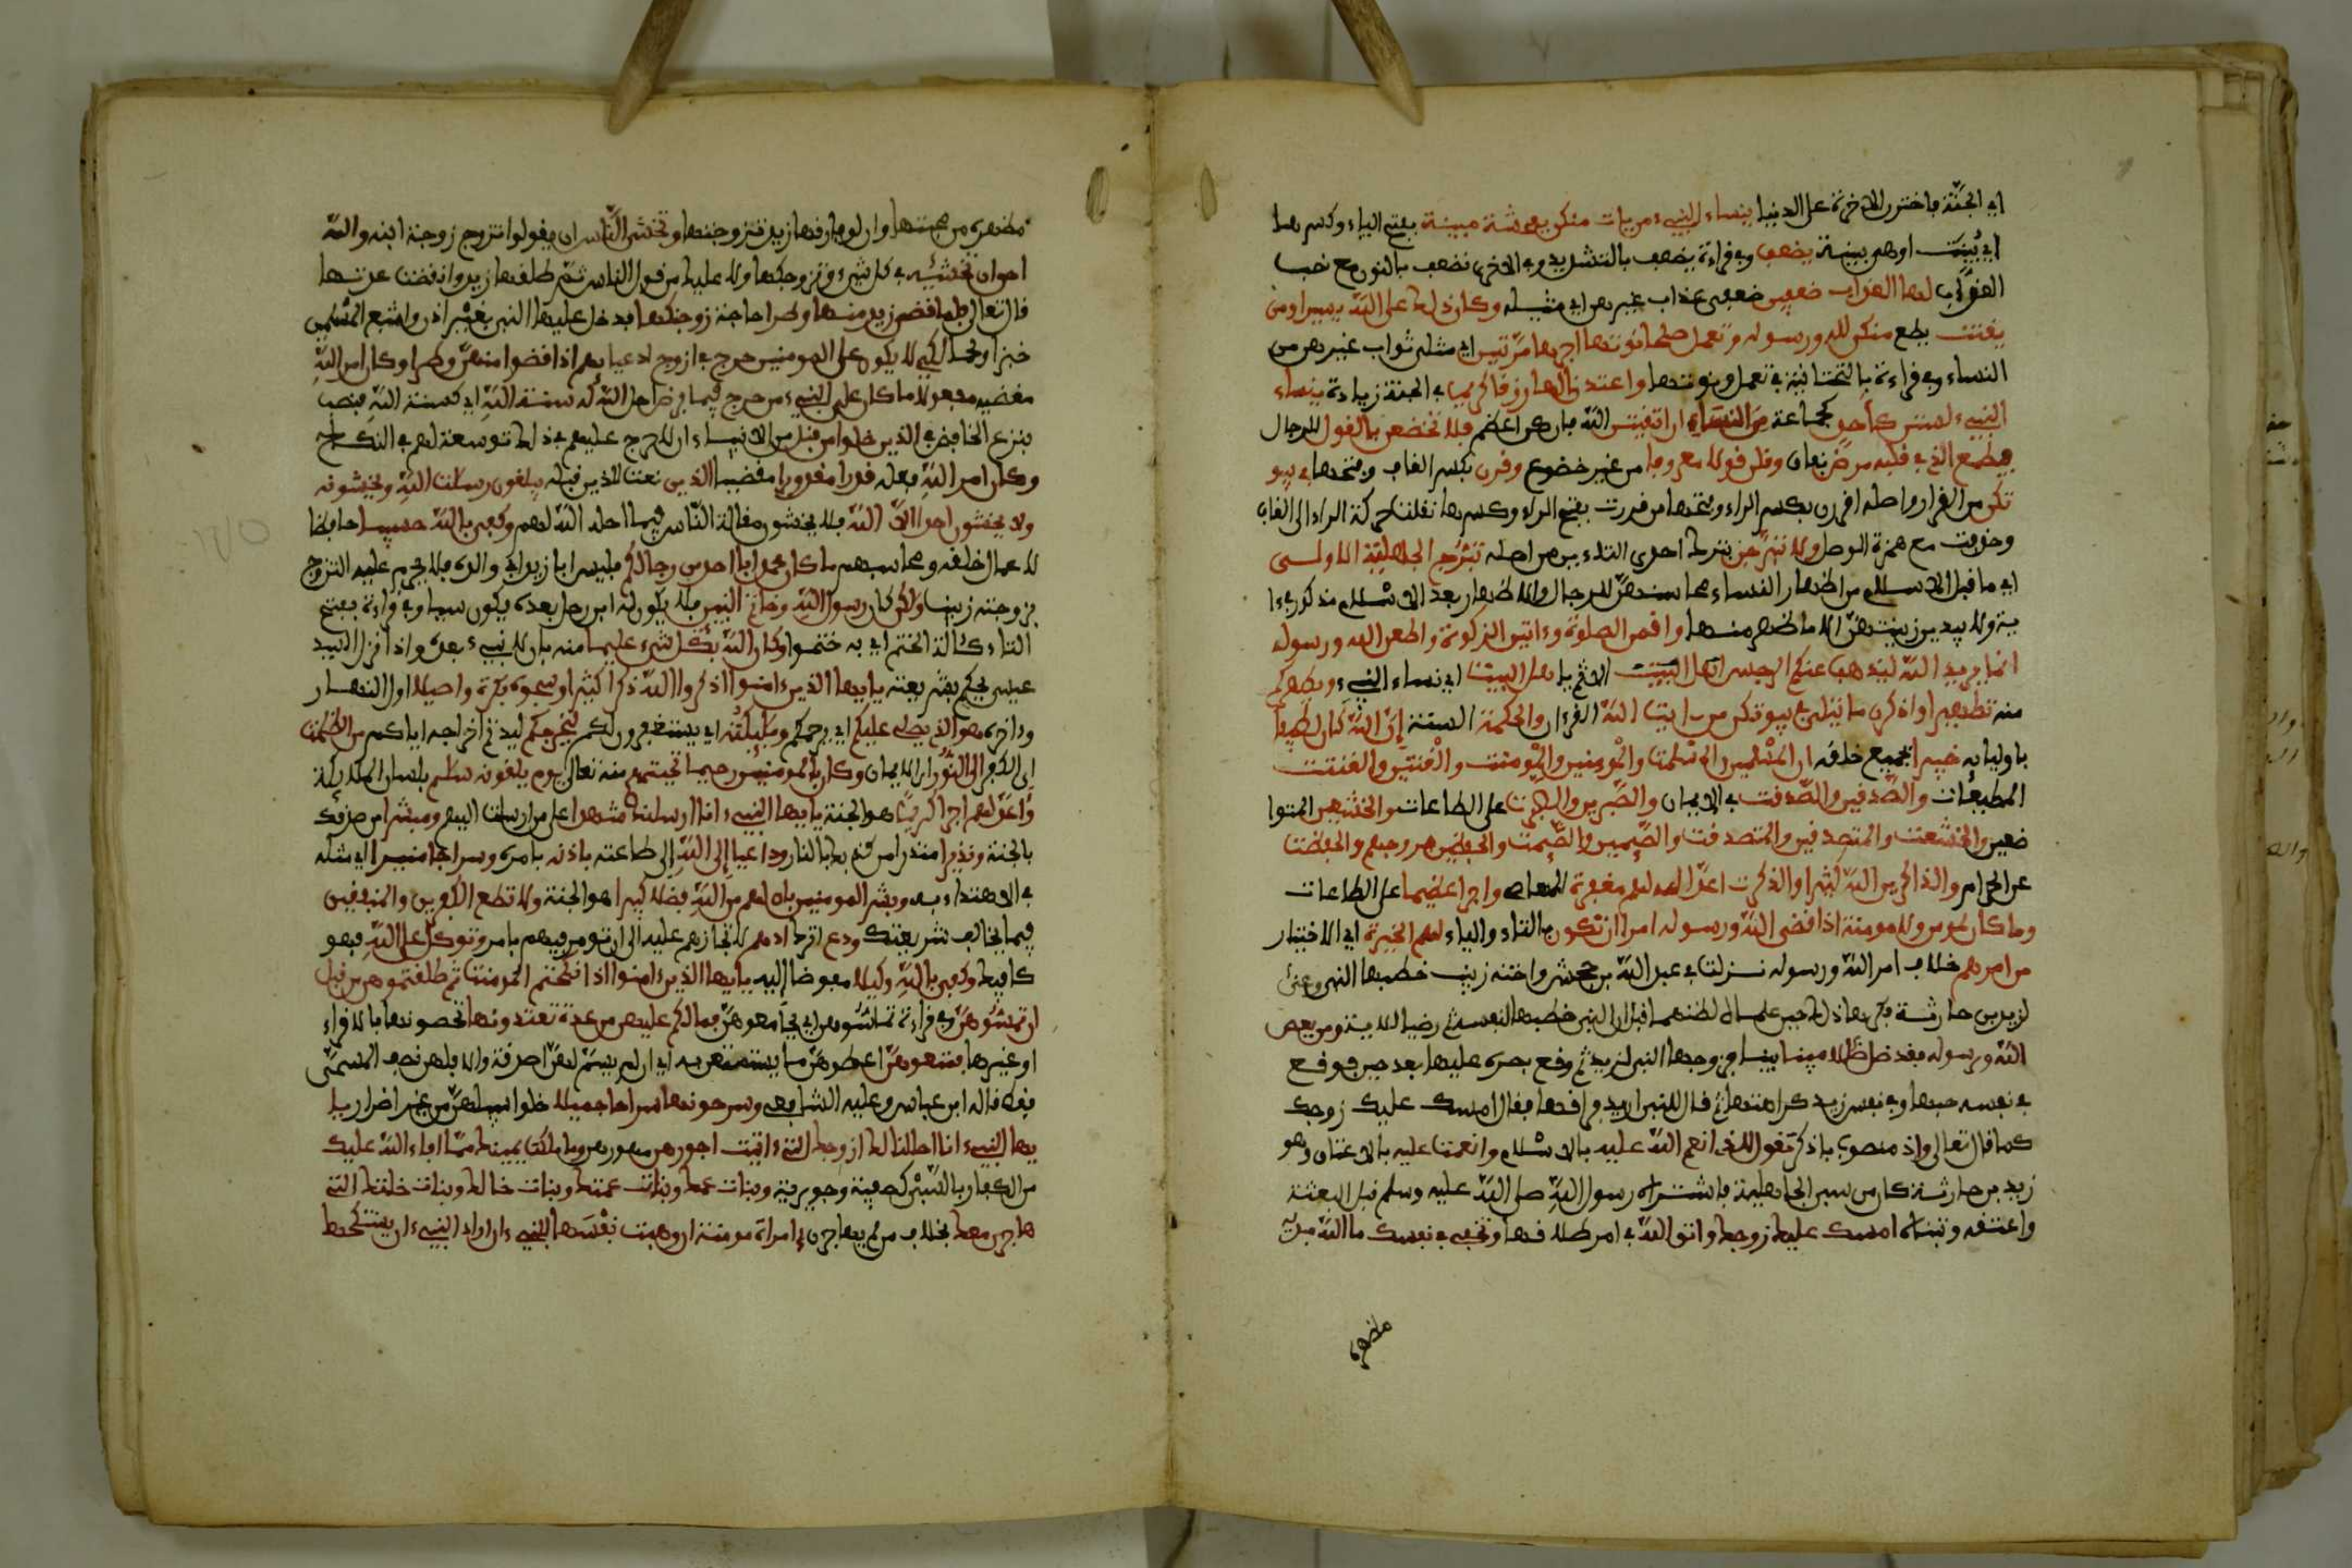 اي الجنة فاخترن الاخرة على الدنيا ينساء النبيء من يات منكن بفحشة مبينة بفتح الياء وكسرها
اي بينت او هي بينة يضعف وفي قراءة يضعف بالتشديد وفي الاخرى نضعف بالنون مع نصب
العذاب لها العذاب ضعفين ضعفي عذاب غيرهن اي مثليه وكان ذلك على الله يسيرا ومن
يقنت يطع منكن لله ورسوله وتعمل صلحا نوتها اجرها مرتين اي مثلي ثواب غيرهن من
النساء وفي قراءة بالتحتانية في تعمل ونوتها واعتدنا لها رزقا كريما في الجنة زيادة ينساء
النبيء لستن كاحد كجماعة من النساء ان اتقيتن الله فانكن اعظم فلا تخضعن بالقول للرجال
فيطمع الذي في قلبه مرض نفاق وقلن قولا معروفا من غير خضوع وقرن بكسر القاف وفتحها في بيو
تكن من القرار واصله اقررن بكسر الراء وفتحها من قررت بفتح الراء وكسرها نقلت حركة الراء الى القاف
وحذفت مع همزة الوصل ولا تبرجن بترك احدى التاءين من اصله تبرج الجهلية الاولى
اي ما قبل الاسلام من اظهار النساء محاسنهن للرجال والاظهار بعد الاسلام مذكور في ءا
ية ولا يبدين زينتهن الا ما ظهر منها واقمن الصلوة وءاتين الزكوة واطعن الله ورسوله
انما يريد الله ليذهب عنكم الرجس اهل البيت الاثم يا اهل البيت اي نساء النبيء ويطهركم
منه تطهيرا واذكرن ما يتلى في بيوتكن من ءايت الله القرءان والحكمة السنة ان الله كان لطيفا
باوليايه خبيرا بجميع خلقه ان المسلمين والمسلمت والمومنين والمومنت والقنتين والقنتت
المطيعات والصدقين والصدقت في الايمان والصبرين والصبرت على الطاعات والخشعين المتوا
ضعين والخشعت والمتصدقين والمتصدقت والصيمين والصيمت والحفظين فروجهم والحفظت
عن الحرام والذاكرين الله كثيرا والذكرت اعد الله لهم مغفرة للمعاصي واجرا عظيما على الطاعات
وما كان لمومن ولا مومنة اذا قضى الله ورسوله امرا ان تكون بالتاء والياء لهم الخيرة اي الاختيار
من امرهم خلاف امر الله ورسوله نزلت في عبد الله بن جحش واخته زينب خطبها النبي وعنى
لزيد بن حارثة فكرها ذلك حين علما لظنهما قبل ان النبي خطبها لنفسه ثم رضيا للاية ومن يعص
الله ورسوله فقد ضل ضللا مبينا بينا فزوجها النبي لزيد ثم وقع بصره عليها بعد حين فوقع
في نفسه حبها وفي نفس زيد كراهتها ثم قال للنبي اريد فراقها فقال امسك عليك زوجك
كما قال تعالى واذ منصوب باذكر تقول للذي انعم الله عليه بالاسلام وانعمت عليه بالاعتاق وهو
زيد بن حارثة كان من سبي الجاهلية فاشتراه رسول الله صلى الله عليه وسلم قبل البعثة
واعتقه وتبناه امسك عليك زوجك واتق الله في امر طلاقها وتخفي في نفسك ما الله مبديه
مظهره
مظهره من محبتها وان لو فارقها زيد تزوجتها وتخشى الناس ان يقولوا تزوج زوجة ابنه والله
احق ان تخشيه في كل شيء وتزوجكها ولا عليك من قول الناس ثم طلقها زيد وانقضت عدتها
قال تعالى فلما قضى زيد منها وطرا حاجة زوجنكها فدخل عليها النبي بغير اذن واشبع المسلمين
خبزا ولحما لكي لا يكون على المومنين حرج في ازوج ادعيايهم اذا قضوا منهن وطرا وكان امر الله
مقضيه مفعولا ما كان على النبيء من حرج فيما فرض احل الله له سنة الله اي كسنة الله فنصب
بنزع الخافض في الذين خلوا من قبل من الانبياء ان لا حرج عليهم في ذلك توسعة لهم في النكاح
وكان امر الله فعله قدرا مقدورا مقضيا الذين نعت للذين قبله يبلغون رسلت الله ويخشونه
ولا يخشون احدا الا الله فلا يخشون مقالة الناس فيما احل الله لهم وكفى بالله حسيبا حافظا
لاعمال خلقه ومحاسبهم ما كان محمد ابا احد من رجالكم فليس ابا زيد اي والده فلا يحرم عليه التزوج
بزوجته زينب ولكن كان رسول الله وخاتم النبيين فلا يكون له ابن رجل بعده يكون نبيا وفي قراءة بفتح
التاء كئالة الختم اي به ختموا وكان الله بكل شيء عليما منه بان لا نبيء بعده واذا نزل السيد
عيسى يحكم بشريعته يايها الذين ءامنوا اذكروا الله ذكرا كثيرا وسبحوه بكرة واصيلا اول النهار
وءاخره هو الذي يصلي عليكم اي يرحمكم ومليكته اي يستغفرون لكم ليخرجكم ليديم اخراجه اياكم من الظلمت
اي الكفر الى النور اي الايمان وكان بالمومنين رحيما تحيتهم منه تعالى يوم يلقونه سلم بلسان الملائكة
واعد لهم اجرا كريما هو الجنة يايها النبيء انا ارسلنك شهدا على من ارسلت اليهم ومبشرا من صدقك
بالجنة ونذيرا منذرا من كذبك بالنار وداعيا الى الله الى طاعته باذنه بامره وسراجا منيرا اي مثله
في الاهتداء به وبشر المومنين بان لهم من الله فضلا كبيرا هو الجنة ولا تطع الكفرين والمنفقين
فيما يخالف شريعتك ودع اترك اذيهم لا تجازهم عليه الى ان تومر فيهم بامر وتوكل على الله فهو
كافيك وكفى بالله وكيلا مفوضا اليه يايها الذين ءامنوا اذا نكحتم المومنت ثم طلقتموهن من قبل
ان تمسوهن وفي قراءة تماسوهن اي تجامعوهن فما لكم عليهن من عدة تعتدونها تحصونها بالاقراء
او غيرها فمتعوهن اعطوهن ما يستمتعن به اي ان لم يسم لهن اصدقة والا فلهن نصف المسمى
فقط قاله ابن عباس وعليه الشافعي وسرحوهن سراحا جميلا خلوا سبيلهن من غير اضرار يا
يها النبيء انا احللنا لك ازوجك التي ءاتيت اجورهن مهورهن وما ملكت يمينك مما افاء الله عليك
من الكفار بالسبي كصفية وجويرية وبنات عمك وبنات عمتك وبنات خالك وبنات خلتك التي
هاجرن معك بخلاف من لم يهاجرن وامراة مومنة ان وهبت نفسها للنبيء ان اراد النبيء ان يستنكحها